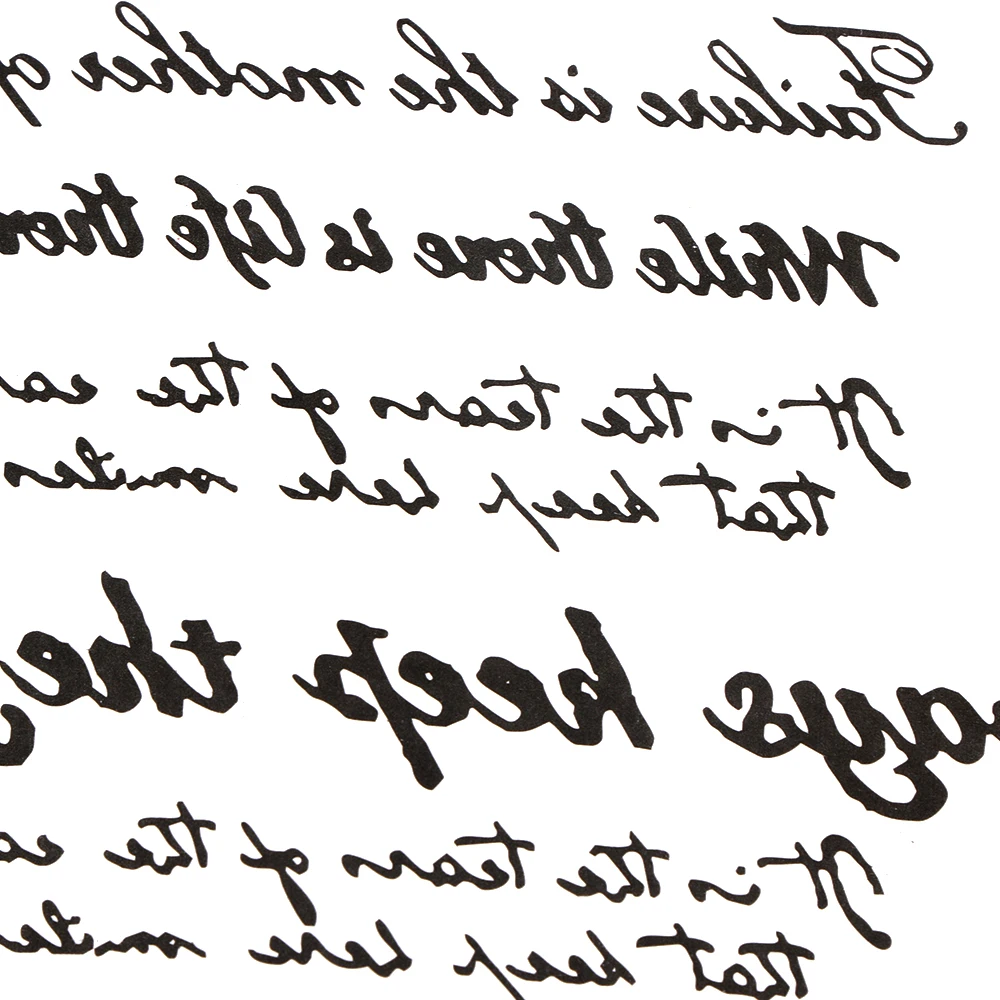 Failure is the mother o
While there is life ther
It is the tears of the ea
that keep here smiles
ays keep the
It is the tears of the ea
that keep here smiles